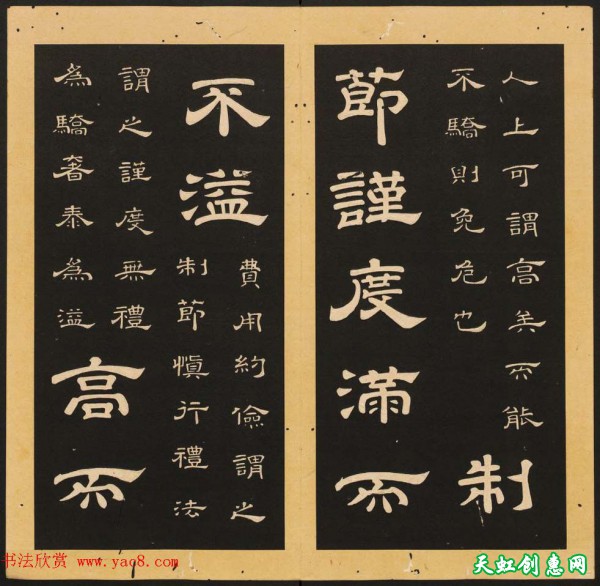 人上可謂高矣而能
不驕則免危也
制
節謹度滿而
不溢
費用約儉謂之
制節慎行禮法
謂之謹度無禮
為驕奢泰為溢
高而
书法欣赏 www.yac8.com
天虹创惠网